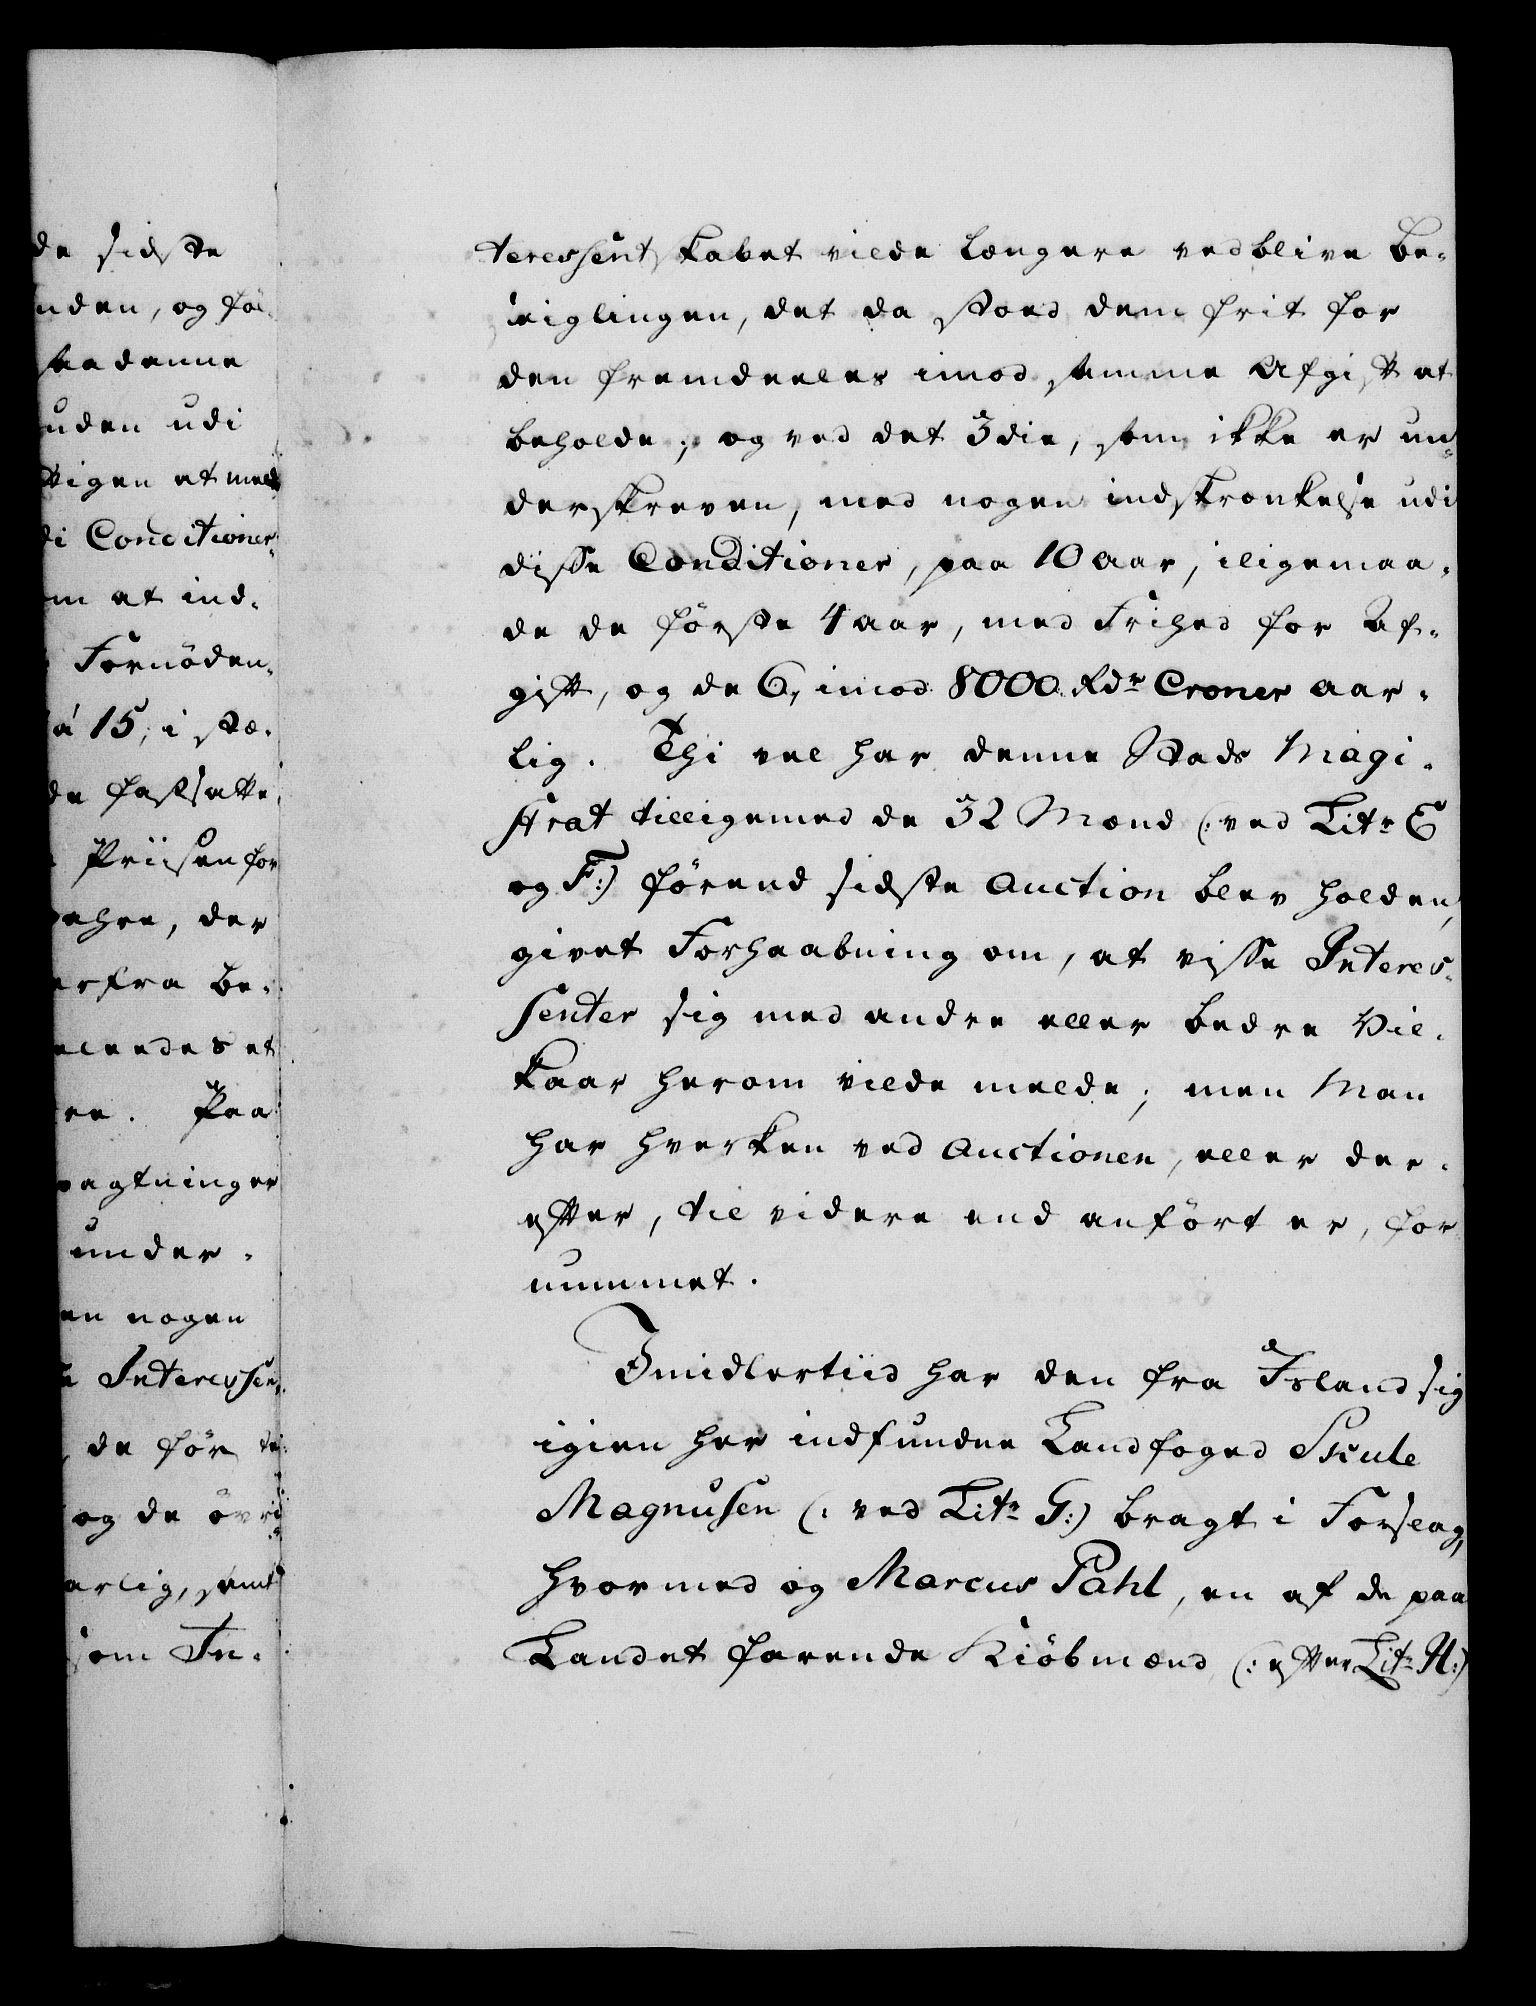 de sidste
nden, og föl-
saa denne
uden udi
ttigen at meld
di Conditioner-
m at ind-
Fornöden-
á 15, i stæ-
de fastsatte
Priisen for
sehre, der
erfra be-
eleedes et
ere. Paa
pagtninger
under-
en nogen
Interessen-
de för te-
og de övri
arlig, samt
som In-
teressentskabet vilde længere vedblive be-
seiglingen, det da stoed dem frit for
den fremdeeles imod samme Afgift at
beholde; og ved det 3die, som ikke er un-
derskreven, med nogen indskrænkelse udi
disse Conditioner, paa 10 aar, iligemaa-
de de förste 4 aar, med Frihed for Af-
gift, og de 6, imod 8000 Rdr Croner aar-
lig. Thi vel har denne Stads Magi-
strat tilligemed de 32 Mænd (: ved Litr E
og F:) förend sidste Auction blev holden,
givet Forhaabning om, at visse Interes-
senter sig med andre eller bedre Vil-
kaar herom vilde melde; men Man
har hverken ved Auctionen, eller der-
efter, til videre end anfört er, for-
nummet.
Imidlertiid har den fra Island sig
igien her indfundne Landfoged Skule
Magnusen (: ved Litr G:) bragt i Forslag,
hvormed og Marcus Pahl, en af de paa
Landet farende Kiöbmænd (: efter Litr H:)